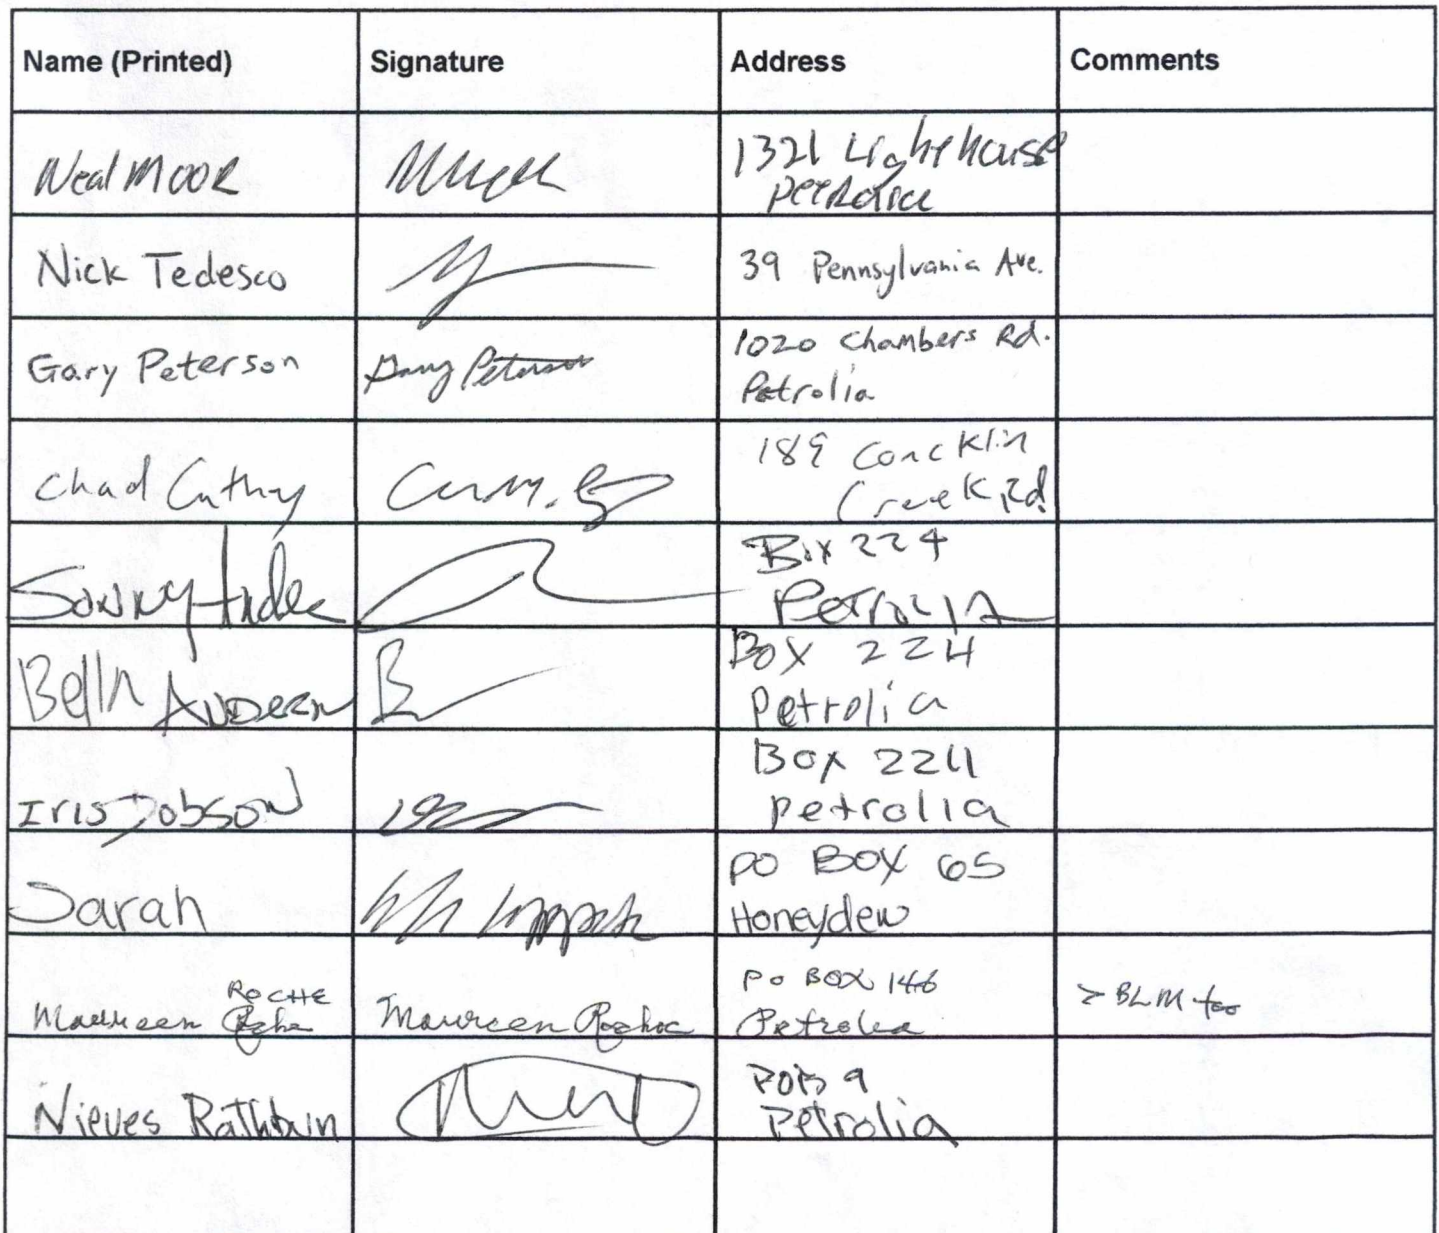 Name (Printed) Signature Address Comments
Neal Moor 1321 Lighthouse
Petrolia
Nick Tedesco 39 Pennsylvania Ave.
Gary Peterson Gary Peterson 1020 Chambers Rd.
Petrolia
Chad Cathey 189 Concklin
Creek Rd
Sonny Box 224
Petrolia
Bella Anderson Box 224
Petrolia
Iris Dobson Box 224
Petrolia
Sarah PO BOX 65
Honeydew
ROCHE PO BOX 146
Maureen Roche Maureen Petrolia > BLM too
Nieves Rathbun POB 9
Petrolia